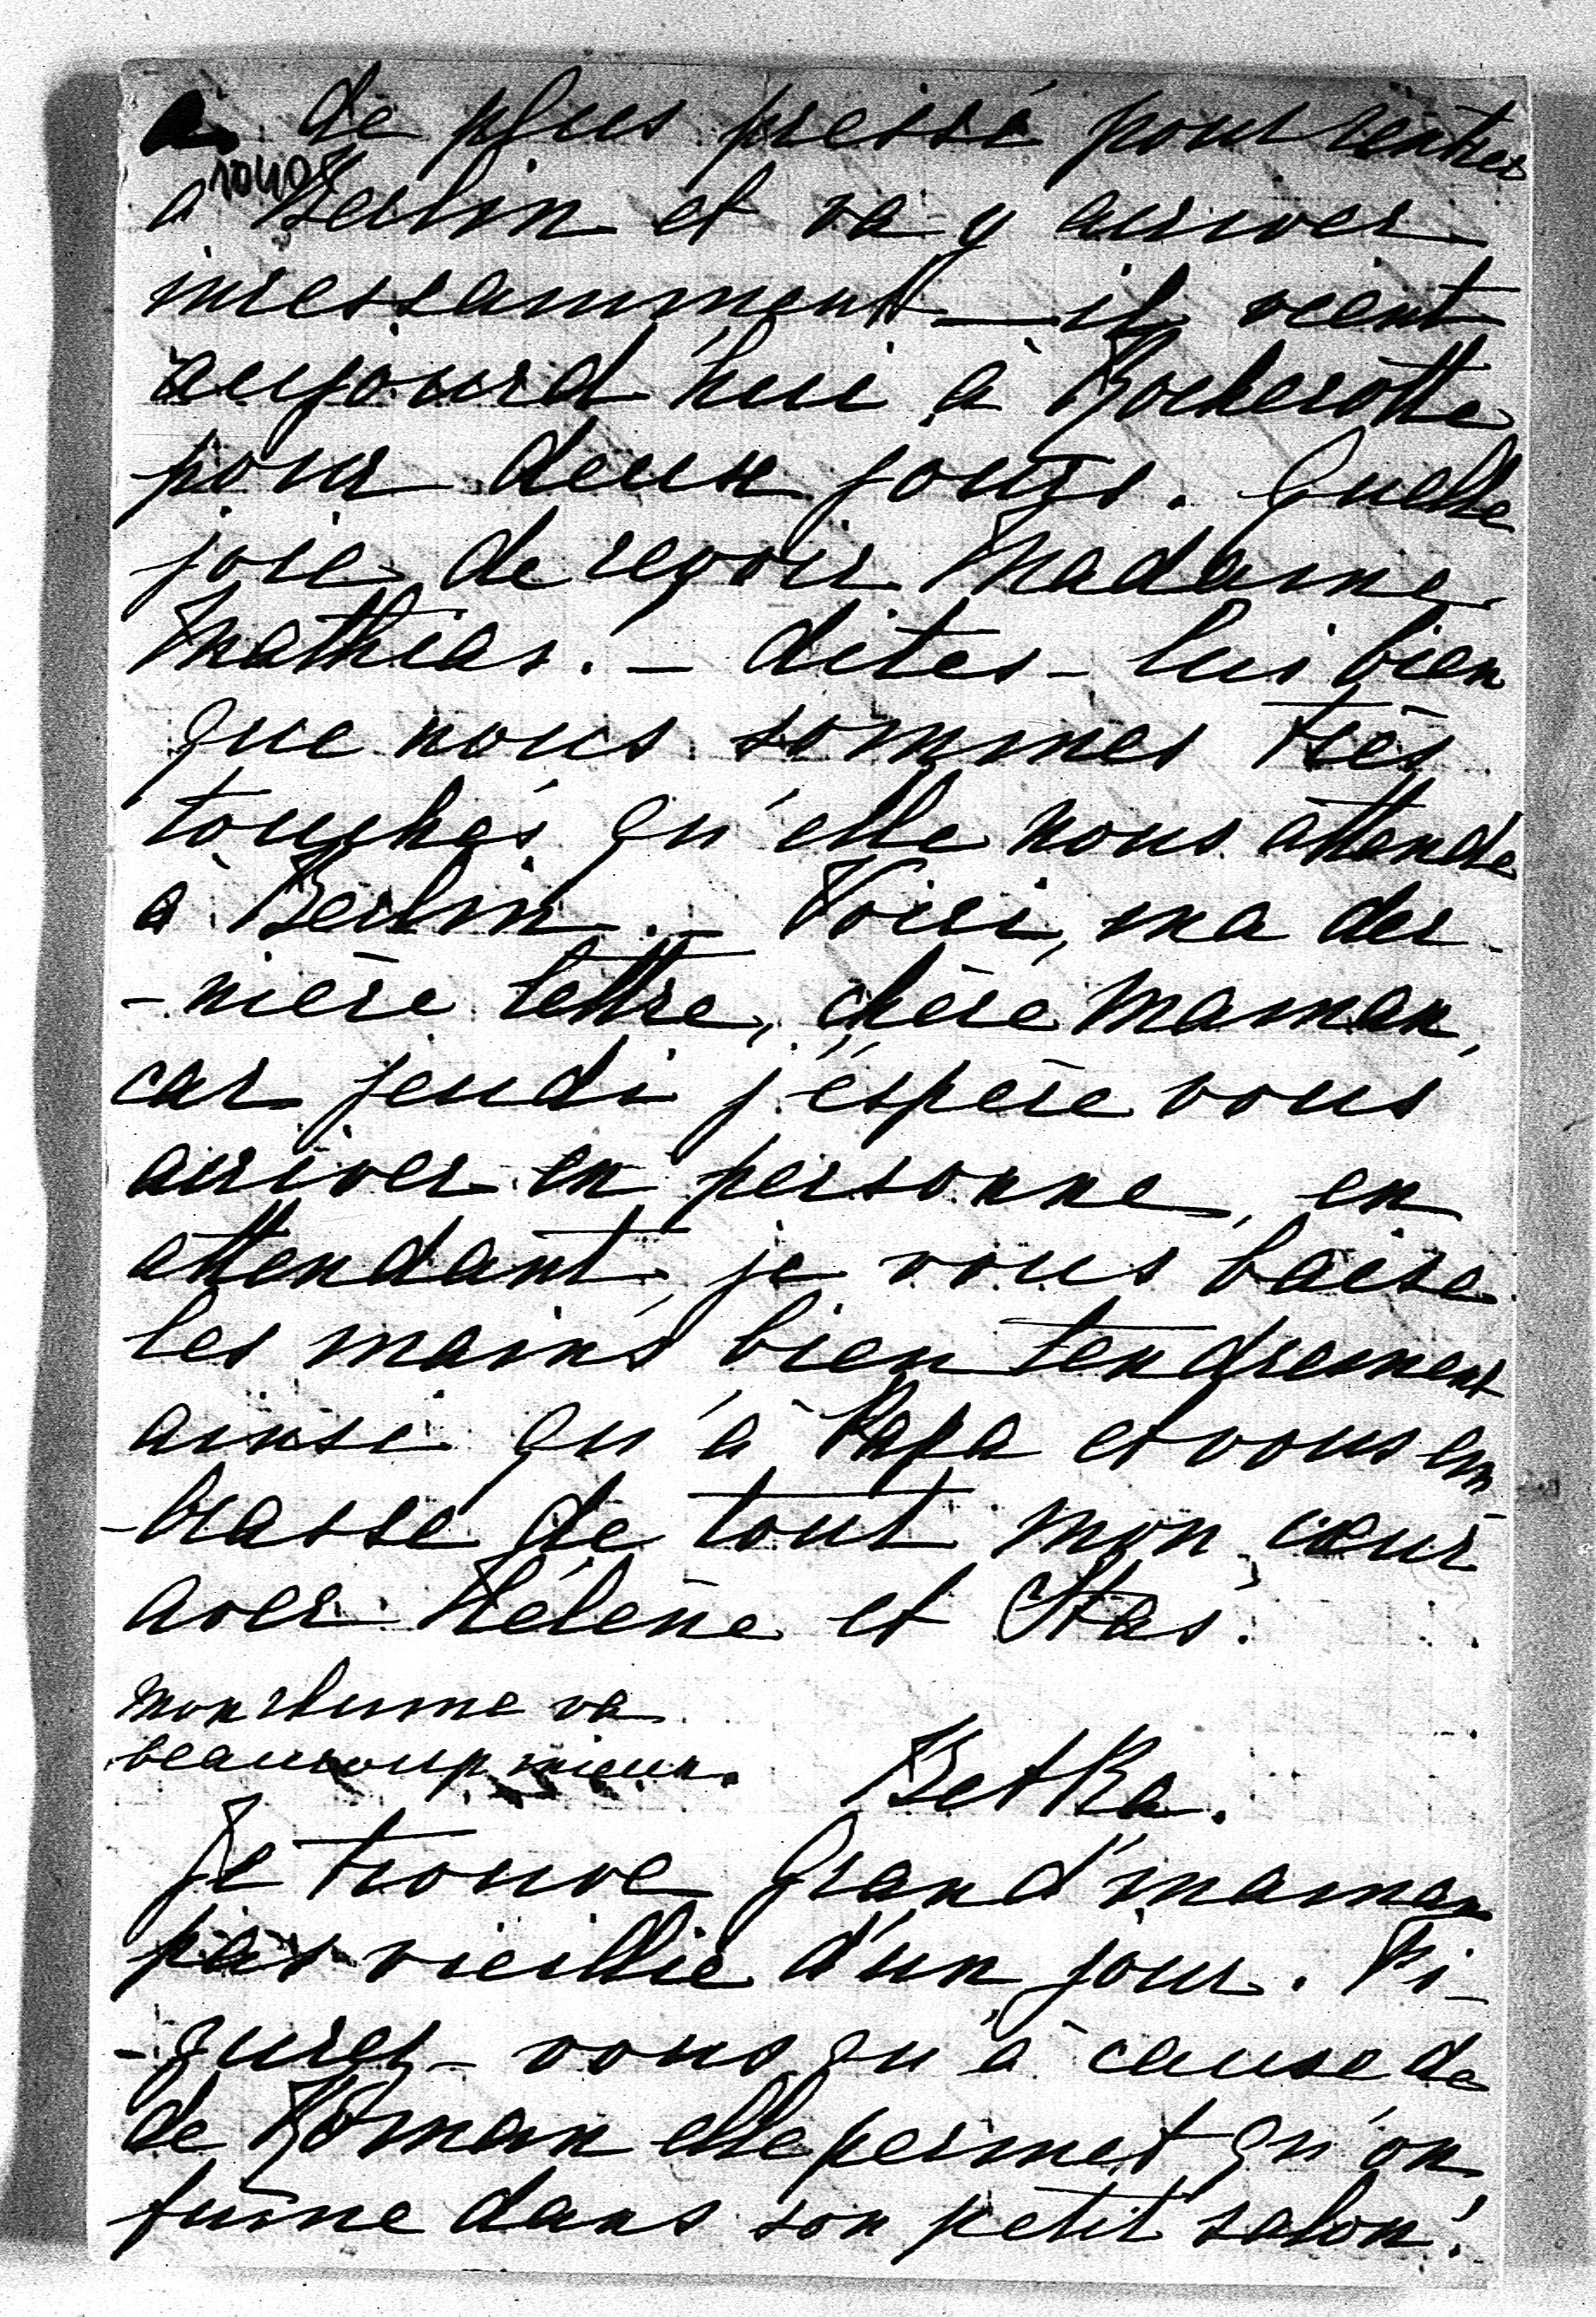 de plus pressé pour rentrer
à Berlin et va y arriver
incessamment — il vient
aujourd'hui à
pour deux jours. Quelle
joie de revoir Madame
Mathias. — dites-lui bien
que nous sommes très
touchés qu'elle nous attende
à Berlin. — Voici, ma der-
-nière lettre, chère Maman,
car jeudi j'éspère vous
arriver en personne, en
attendant, je vous baise
les mains bien tendrement
ainsi qu'à Papa et vous em
-brasse de tout mon cœur
avec Hélène et Stas.
mon rhume va
beaucoup mieux.
Betka.
Je trouve Grand'maman
pas vieillie d'un jour. Fi-
-gurez-vous qu'à cause de
de Roman elle permet qu'on
fume dans son petit salon!